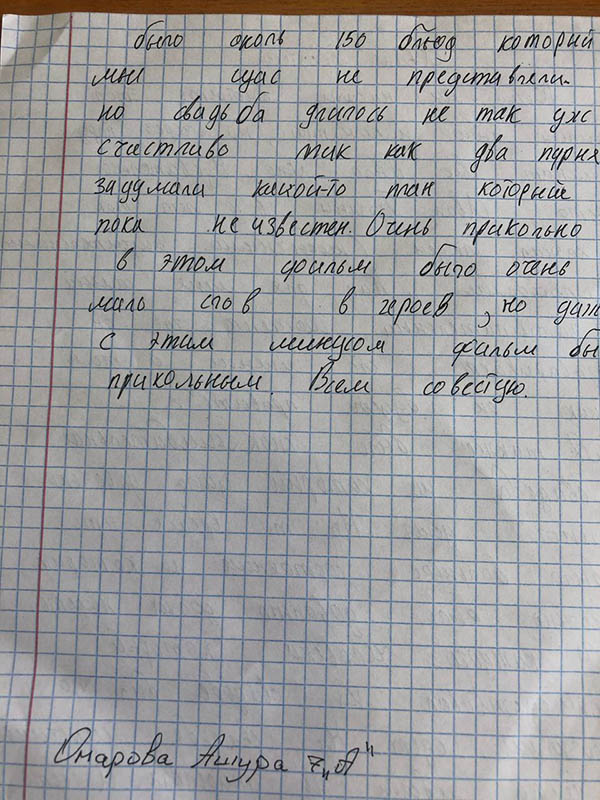 было околь 150 блюд который
мы щас не представляли.
но свадьба длилось не так уж
счастливо так как два пурня
задумали какой-то план которые
пока не известен. Очень прикольно
в этом фильм было очень
маль слов в героев, но даж
с этим минусом фильм бы
прикольным. Всем советую.
Омарова Ашура 7 „А"